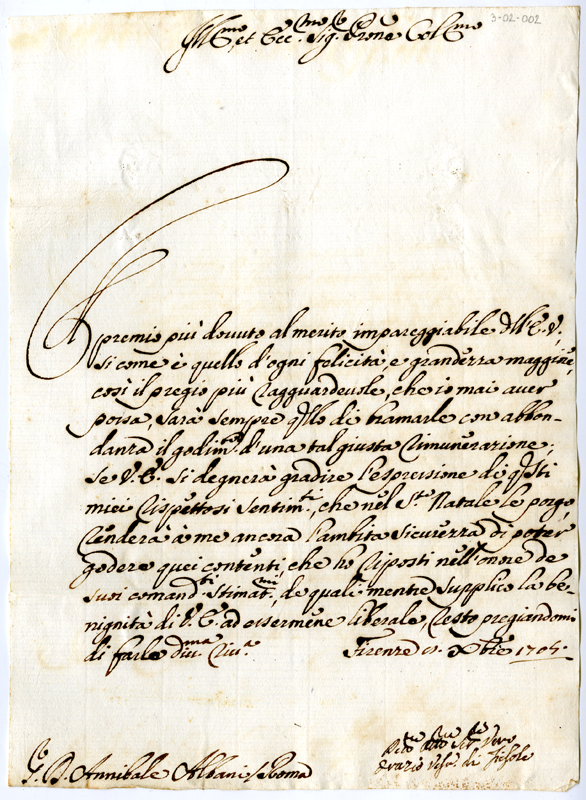 3-02-002
Ill.mo et Ecc.mo Sig.re Prone Col.mo
Il premio più dovuto al merito impareggiabile dell'E. V.,
si come è quello d'ogni felicità, e grandezza maggiore,
così il pregio più ragguardevole, che io mai aver
possa, sarà sempre q.llo di bramarle con abbon-
danza il godim.to d'una tal giusta rimunerazione;
se V. E. si degnerà gradire l'espressione di q.sti
miei rispettosi sentim.ti, che nel S.to Natale le porgo,
renderà à me ancora l'ambita sicurezza di poter
godere quei contenti, che ho riposti nell'onore de
suoi comand.ti stimat.mi, de quali mentre supplico la be-
nignità di V. E. ad essermene liberale, resto pregiandomi
di farle div.ma riv.a Firenze Xbre 1705.
S. D. Annibale Albani Roma
Orazio Vesc. di Fiesole